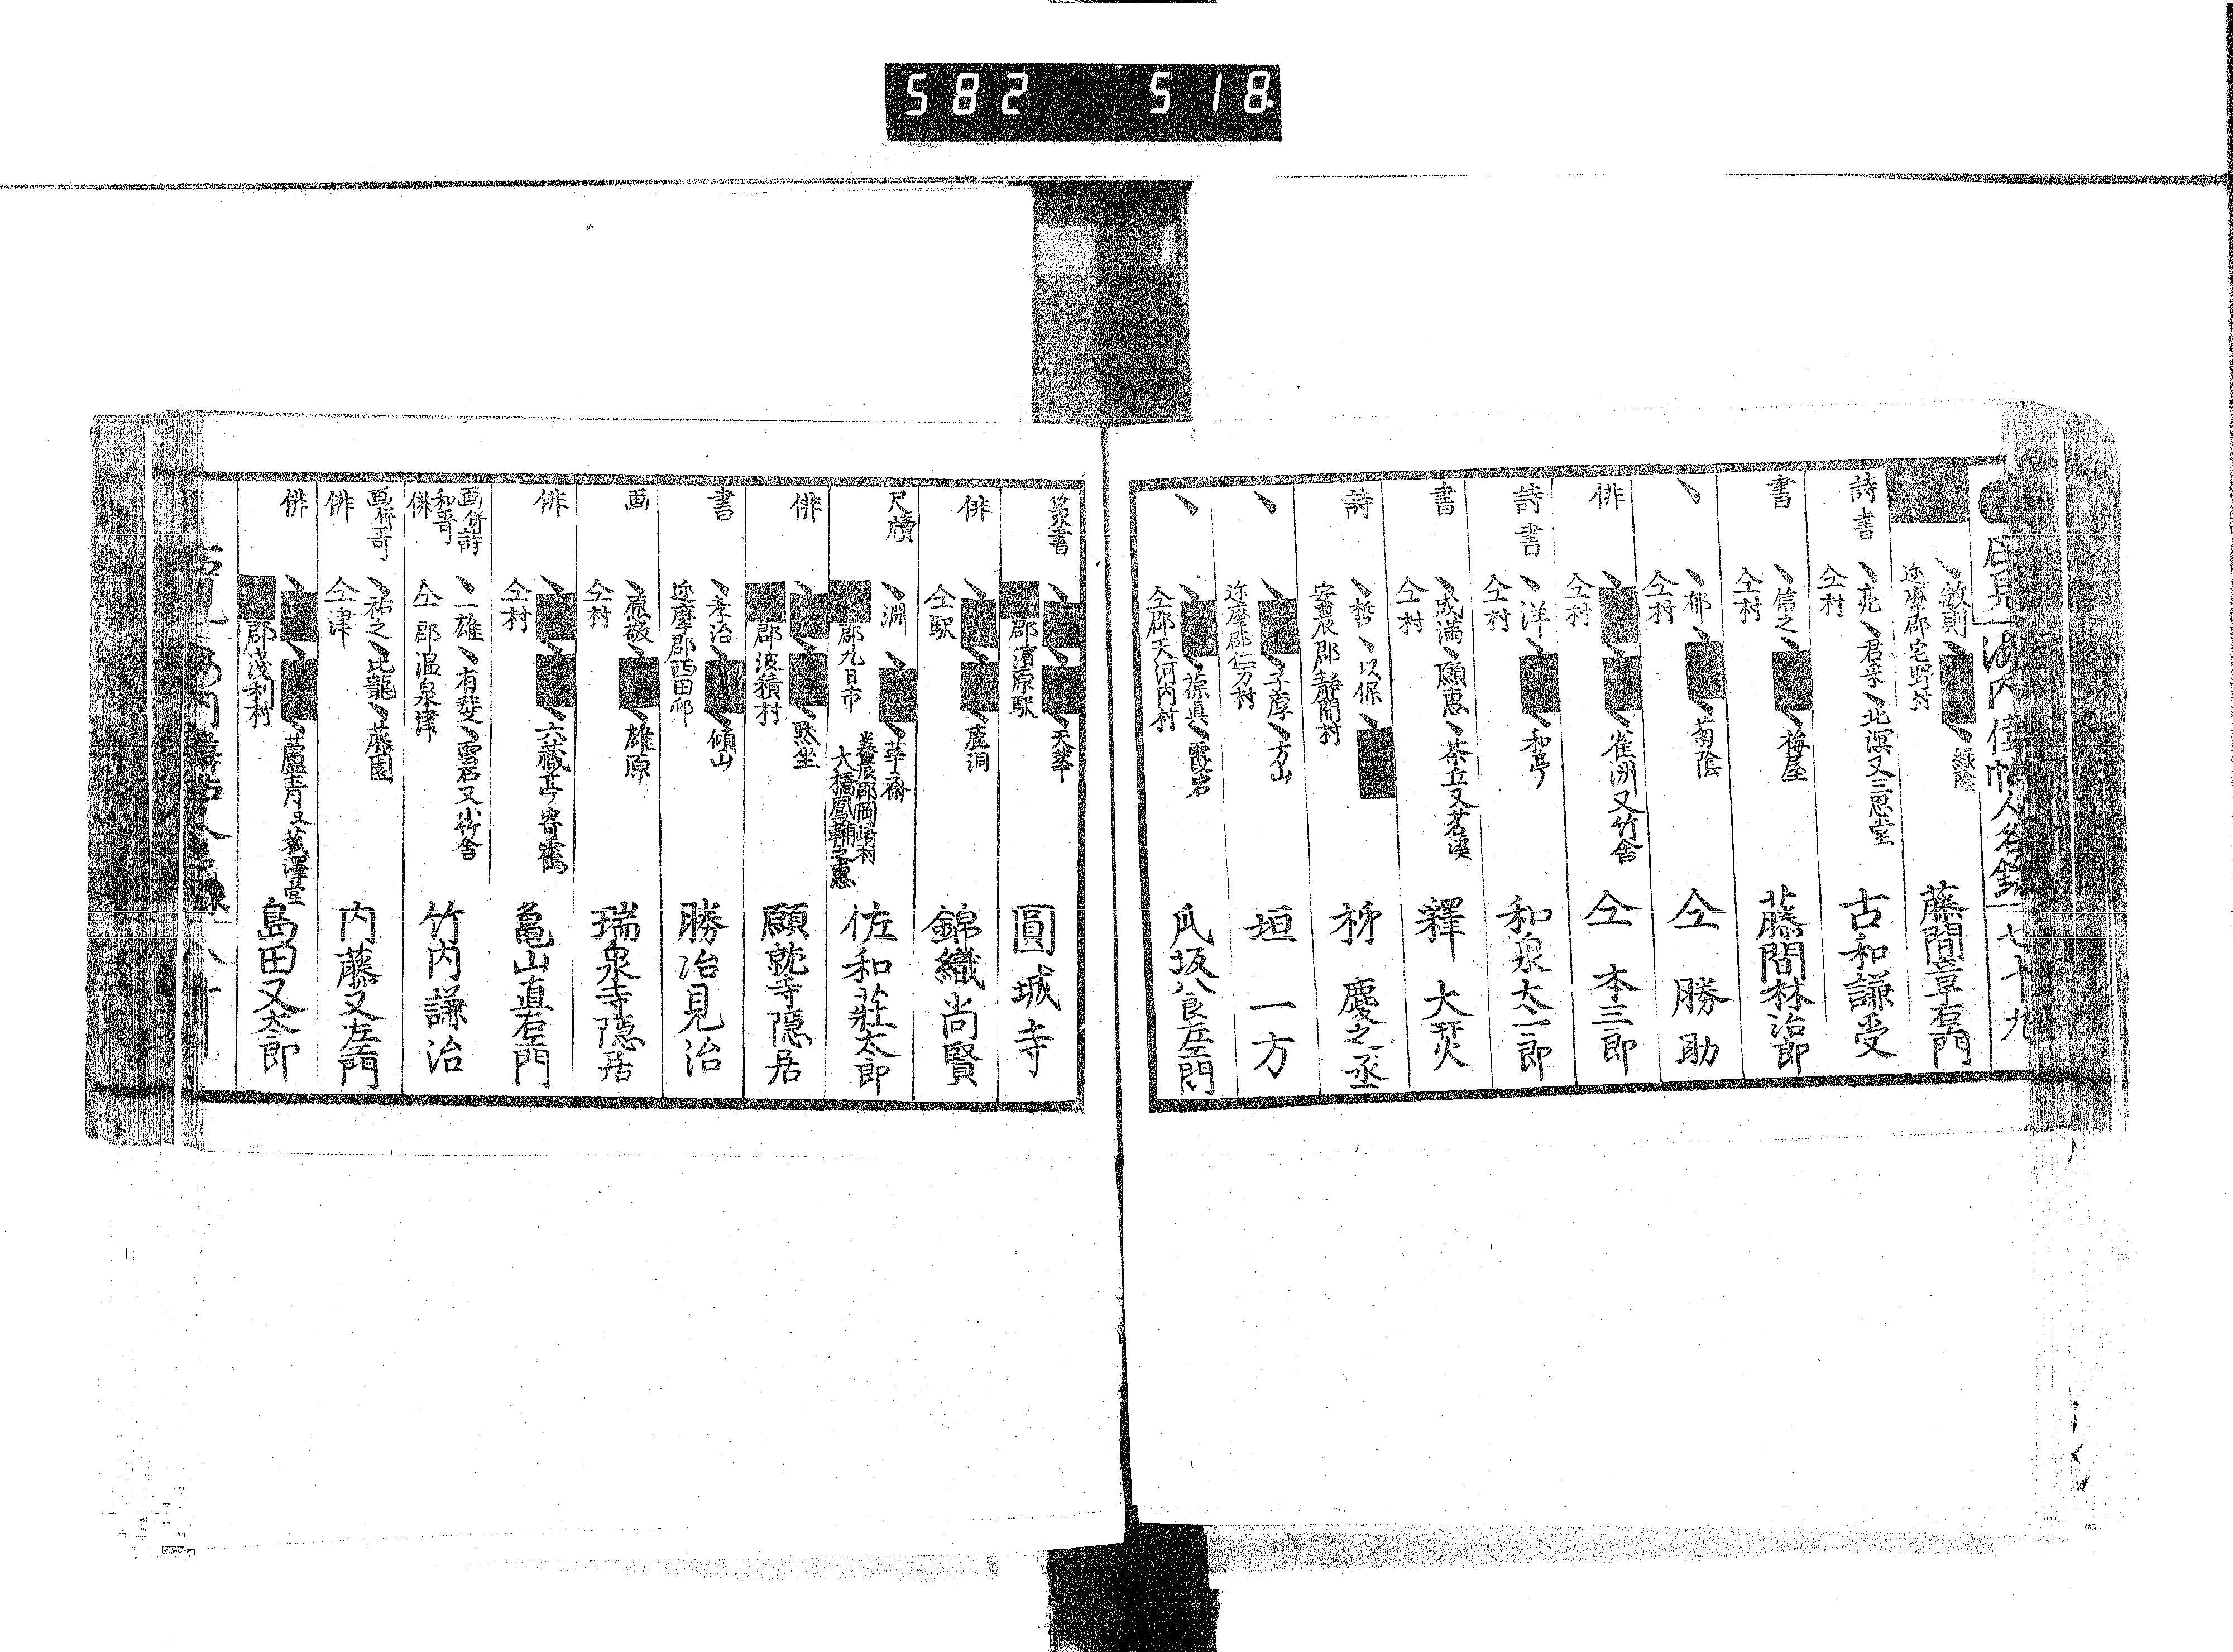 582 518.
石見 海内偉帖人名録 七十九
■ 丶敏則丶■丶緑陰 藤間章右衛門
迩摩郡宅野村
詩書 丶亮丶君采丶北溟又三思堂 古和謙受
仝村
書 丶信之丶■丶梅屋 藤間林治郎
仝村
丶 丶郁丶■丶菊陰 仝 勝助
仝村
俳 丶■丶■丶雀洲又竹舎 仝 本三郎
仝村
詩書 丶洋丶■丶和亭 和泉太一郎
仝村
書 丶成満丶願恵丶茶丘又茗渓 釋 大熒
仝村
詩 丶哲丶以保丶■ 栁 慶之丞
安農郡静間村
丶 丶■丶子厚丶方山 垣 一方
迩摩郡仁万村
丶 丶■丶葆真丶霞岩 瓜坂八良左衛門
仝郡天河内村
篆書 丶■丶■丶天華 圓城寺
■郡濱原駅
俳 丶■丶■丶鹿洞 錦織尚賢
仝駅
尺牘 丶渊丶■丶華斎 佐和莊太郎
■郡九日市
安農郡岡崎村
大橋鳳輔之恵
俳 丶■丶■丶黙坐 願就寺隠居
■郡波積村
書 丶孝治丶■丶傾山 勝冶見治
迩摩郡西田邨
画 丶原敬丶■丶雄源 瑞泉寺隠居
仝村
俳 丶■丶■丶六蔵亭寄霍 亀山直右衛門
仝村
画併詩和哥俳 丶一雄丶有斐丶雲石又小竹舎 竹内謙治
仝郡温泉津
画併哥俳 丶祐之丶比龍丶藤園 内藤又左衛門
仝津
俳 丶■丶■丶蘆青又菰澤堂 島田又太郎
■郡浅利村
石見 海内偉帖人名録 八十